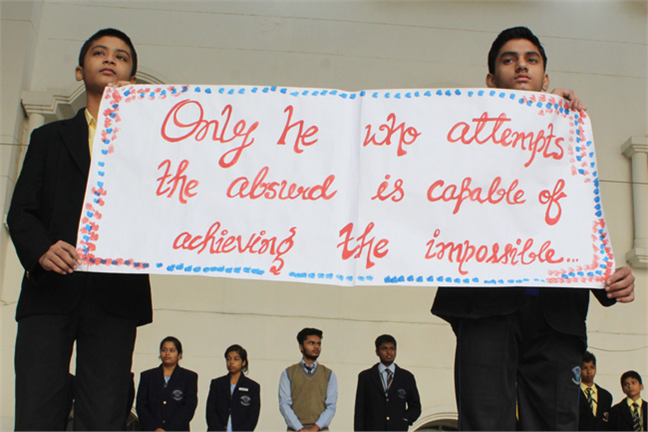 Only he who attempts
the absurd is capable of
achieving the impossible...